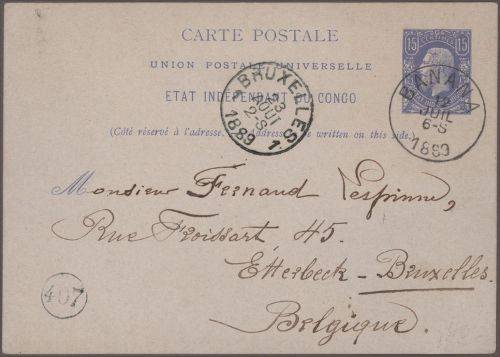 CARTE POSTALE
UNION POSTALE UNIVERSELLE
ETAT INDÉPENDANT DU CONGO
(Côté réservé à l'adresse. written on this side.)
15 15
BRUXELLES 1
3 AOUT
1889
BANANA
12 JUIL
6-S
1889
Monsieur Fernand
Rue Froissart 45.
Etterbeck - Bruxelles.
Belgique.
407